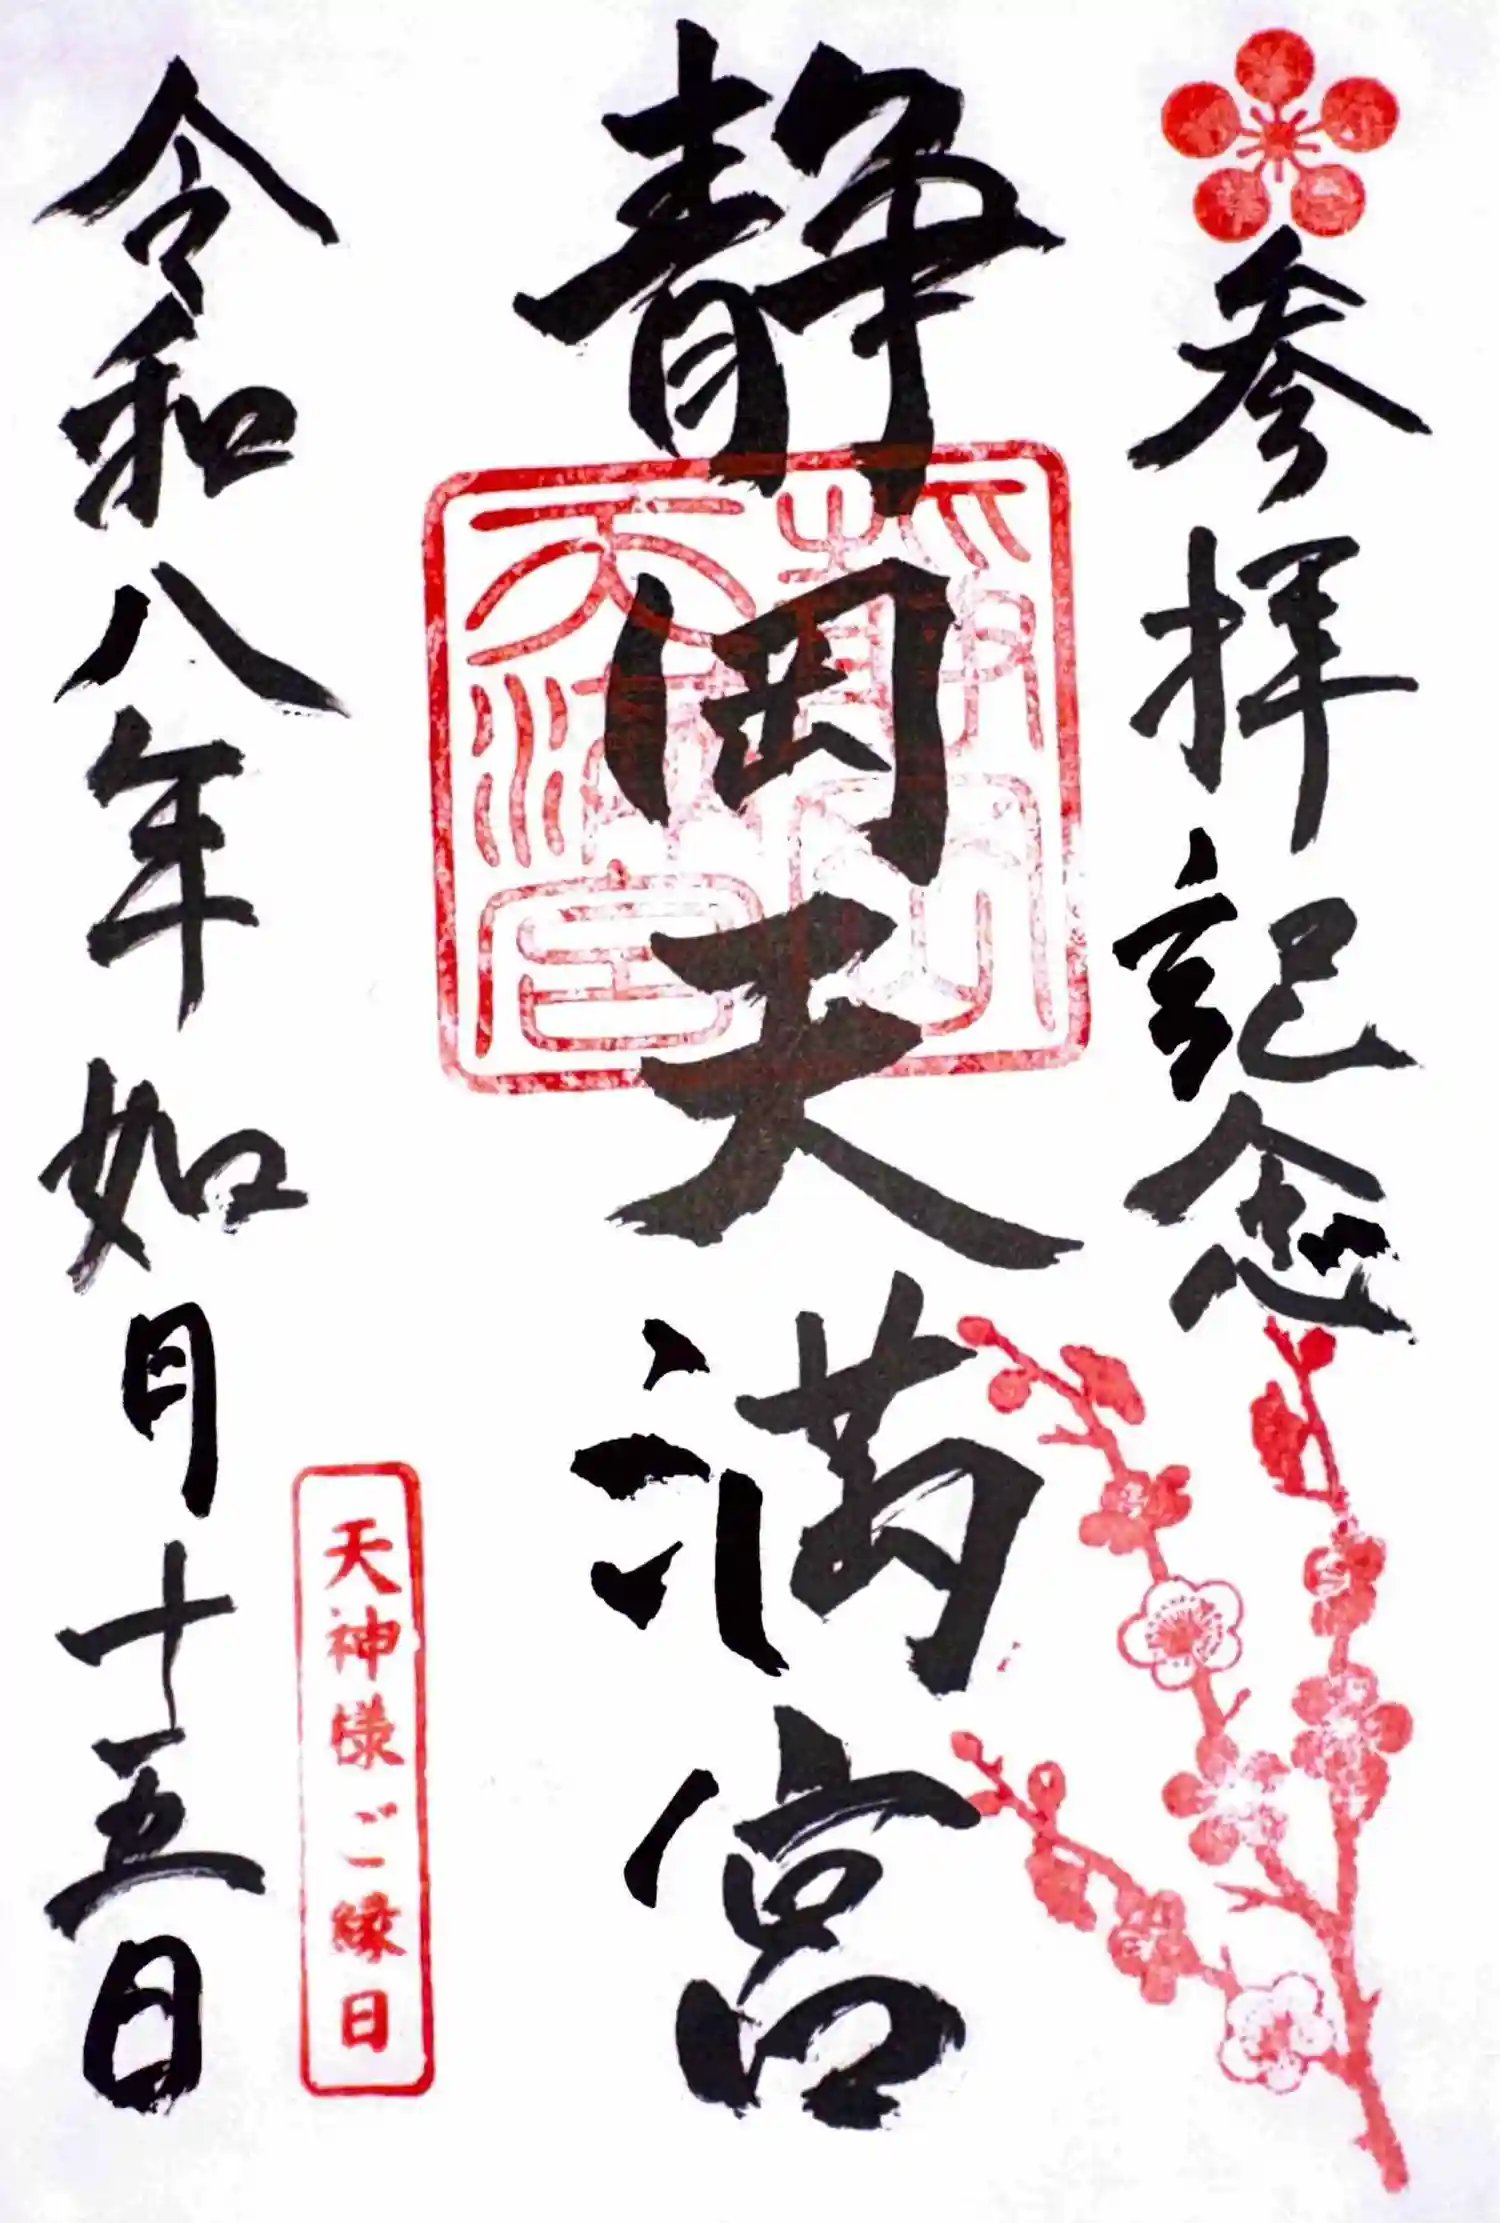 参拝記念
静岡天満宮
静岡
天満宮
天神様ご縁日
令和八年如月十五日